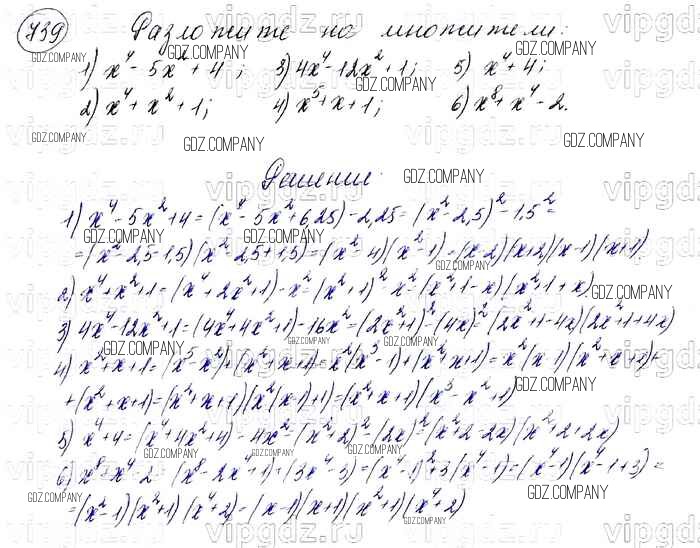 739 Разложите на множители:
1) x⁴ - 5x² + 4; 3) 4x⁴ - 12x² + 1; 5) x⁴ + 4;
2) x⁴ + x² + 1; 4) x⁵ + x + 1; 6) x⁸ + x⁴ - 2.
Решение:
1) x⁴ - 5x² + 4 = (x⁴ - 5x² + 6,25) - 2,25 = (x² - 2,5)² - 1,5² =
= (x² - 2,5 - 1,5)(x² - 2,5 + 1,5) = (x² - 4)(x² - 1) = (x-2)(x+2)(x-1)(x+1)
2) x⁴ + x² + 1 = (x⁴ + 2x² + 1) - x² = (x² + 1)² - x² = (x² + 1 - x)(x² + 1 + x)
3) 4x⁴ - 12x² + 1 = (4x⁴ + 4x² + 1) - 16x² = (2x² + 1)² - (4x)² = (2x² + 1 - 4x)(2x² + 1 + 4x)
4) x⁵ + x + 1 = (x⁵ - x²) + (x² + x + 1) = x²(x³ - 1) + (x² + x + 1) = x²(x-1)(x² + x + 1) +
+ (x² + x + 1) = (x² + x + 1)(x²(x-1) + 1) = (x² + x + 1)(x³ - x² + 1)
5) x⁴ + 4 = (x⁴ + 4x² + 4) - 4x² = (x² + 2)² - (2x)² = (x² + 2 - 2x)(x² + 2 + 2x)
6) x⁸ + x⁴ - 2 = (x⁸ - 2x⁴ + 1) + (3x⁴ - 3) = (x⁴ - 1)² + 3(x⁴ - 1) = (x⁴ - 1)(x⁴ - 1 + 3) =
= (x² - 1)(x² + 1)(x⁴ + 2) = (x-1)(x+1)(x² + 1)(x⁴ + 2)
GDZ.COMPANY
vipgdz.ru